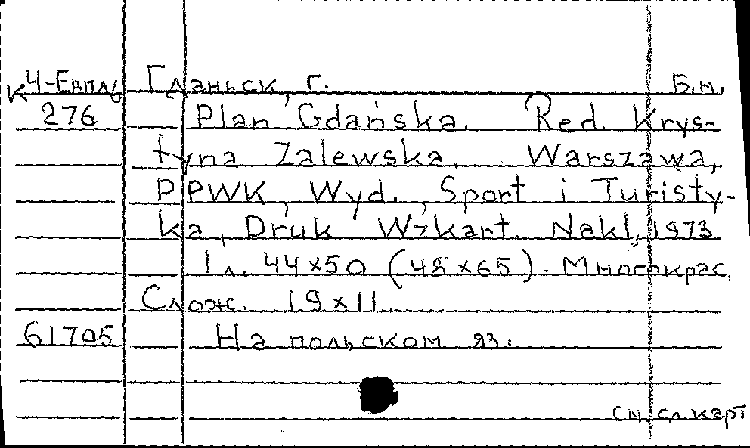 К4-Евпл6 Гданьск, г. Б.м.
276 Plan Gdańska. Red. Krys-
tyna Zalewska. Warszawa,
PPWK, Wyd. "Sport i Turisty-
ka", Druk Wzkart. Nakl., 1973
1 л. 44x50 (48x65). Многокрас.
Слож. 19x11.
61705 На польском яз.
см. сл. карт